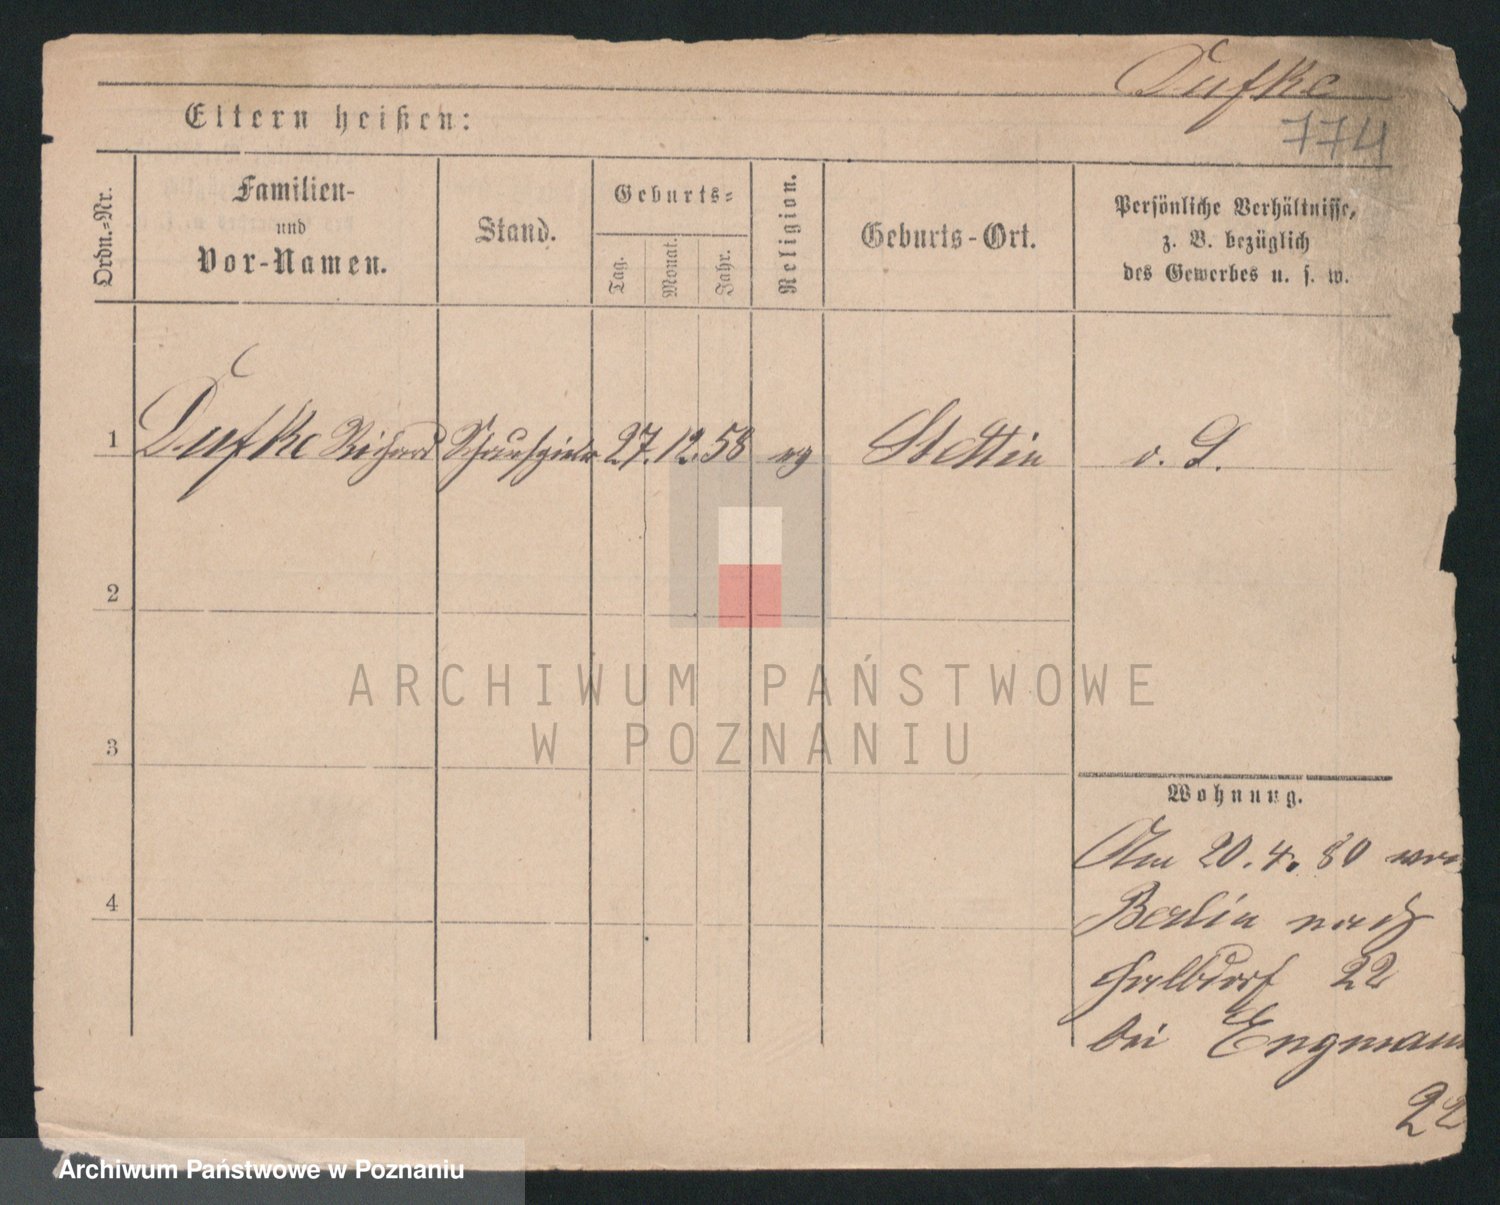 Dufke
774
Eltern heißen:
Ordn.-Nr.
Familien-
und
Vor-Namen.
Stand.
Geburts-
Tag.
Monat.
Jahr.
Religion.
Geburts-Ort.
Persönliche Verhältnisse,
z. B. bezüglich
des Gewerbes u. s. w.
1 Dufke Richard Schauspieler 27. 12. 58 ev Stettin o. L.
2
3
4
Wohnung.
Am 20. 4. 80 von
Berlin nach
Halbdorf 22
bei Engmann
22
ARCHIWUM PAŃSTWOWE
W POZNANIU
Archiwum Państwowe w Poznaniu